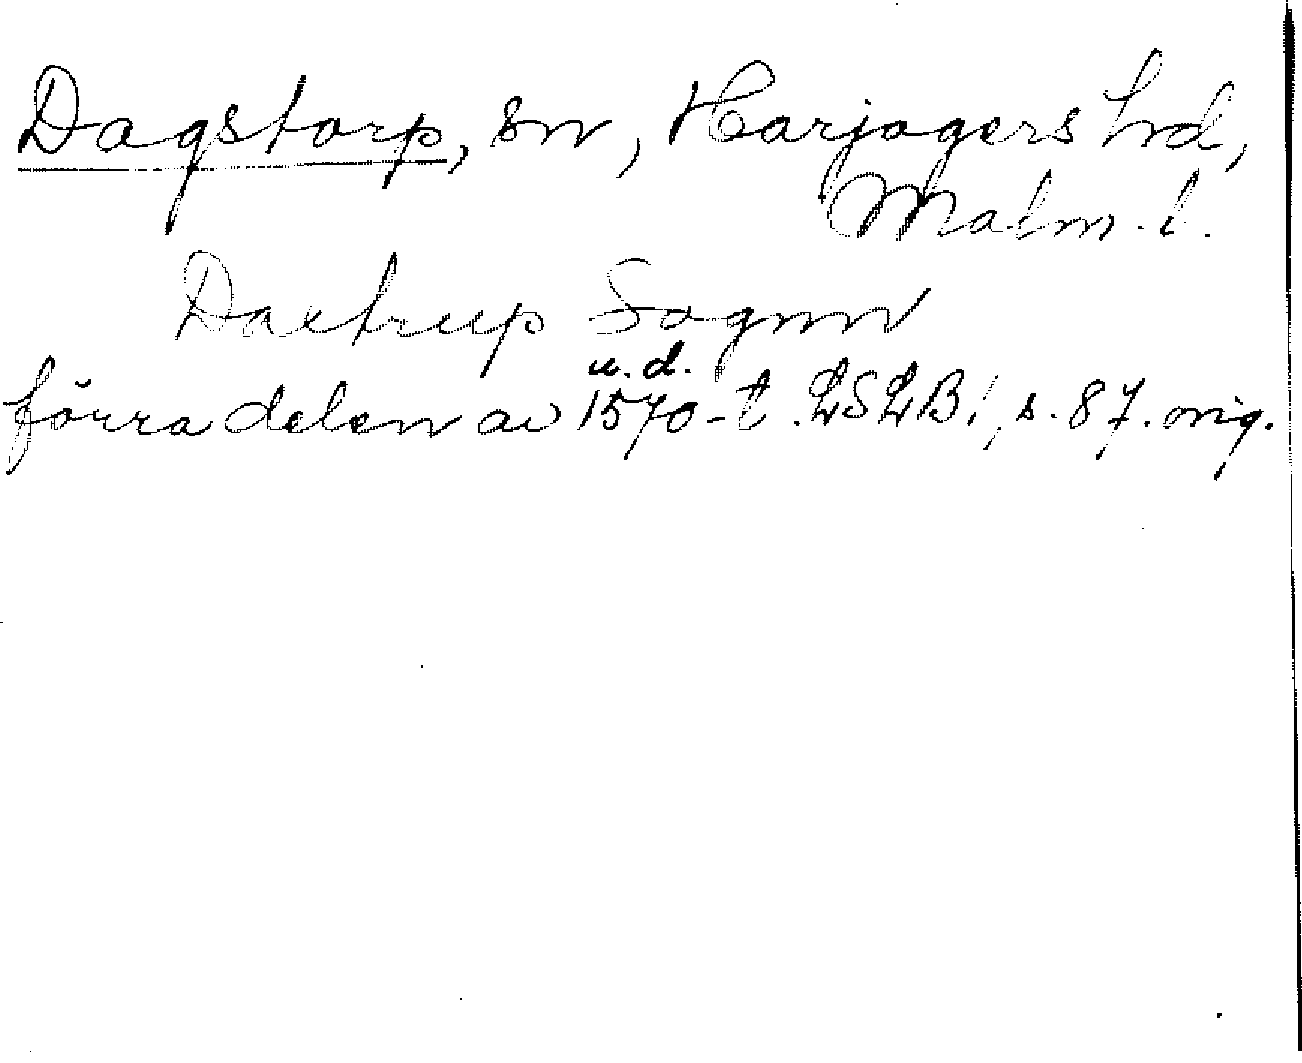 Dagstorp, sn, Harjagers hd,
Malm. l.
Daxtrup Sognn
u. d.
förra delen av 1570-t. LSLB1, s. 87. orig.